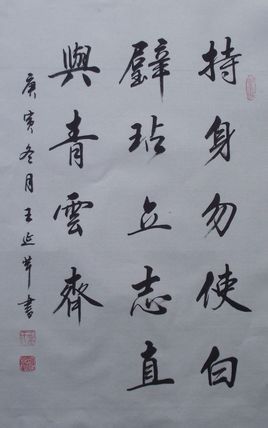 持身勿使白
璧玷立志直
與青雲齊
庚寅冬月王延苹書